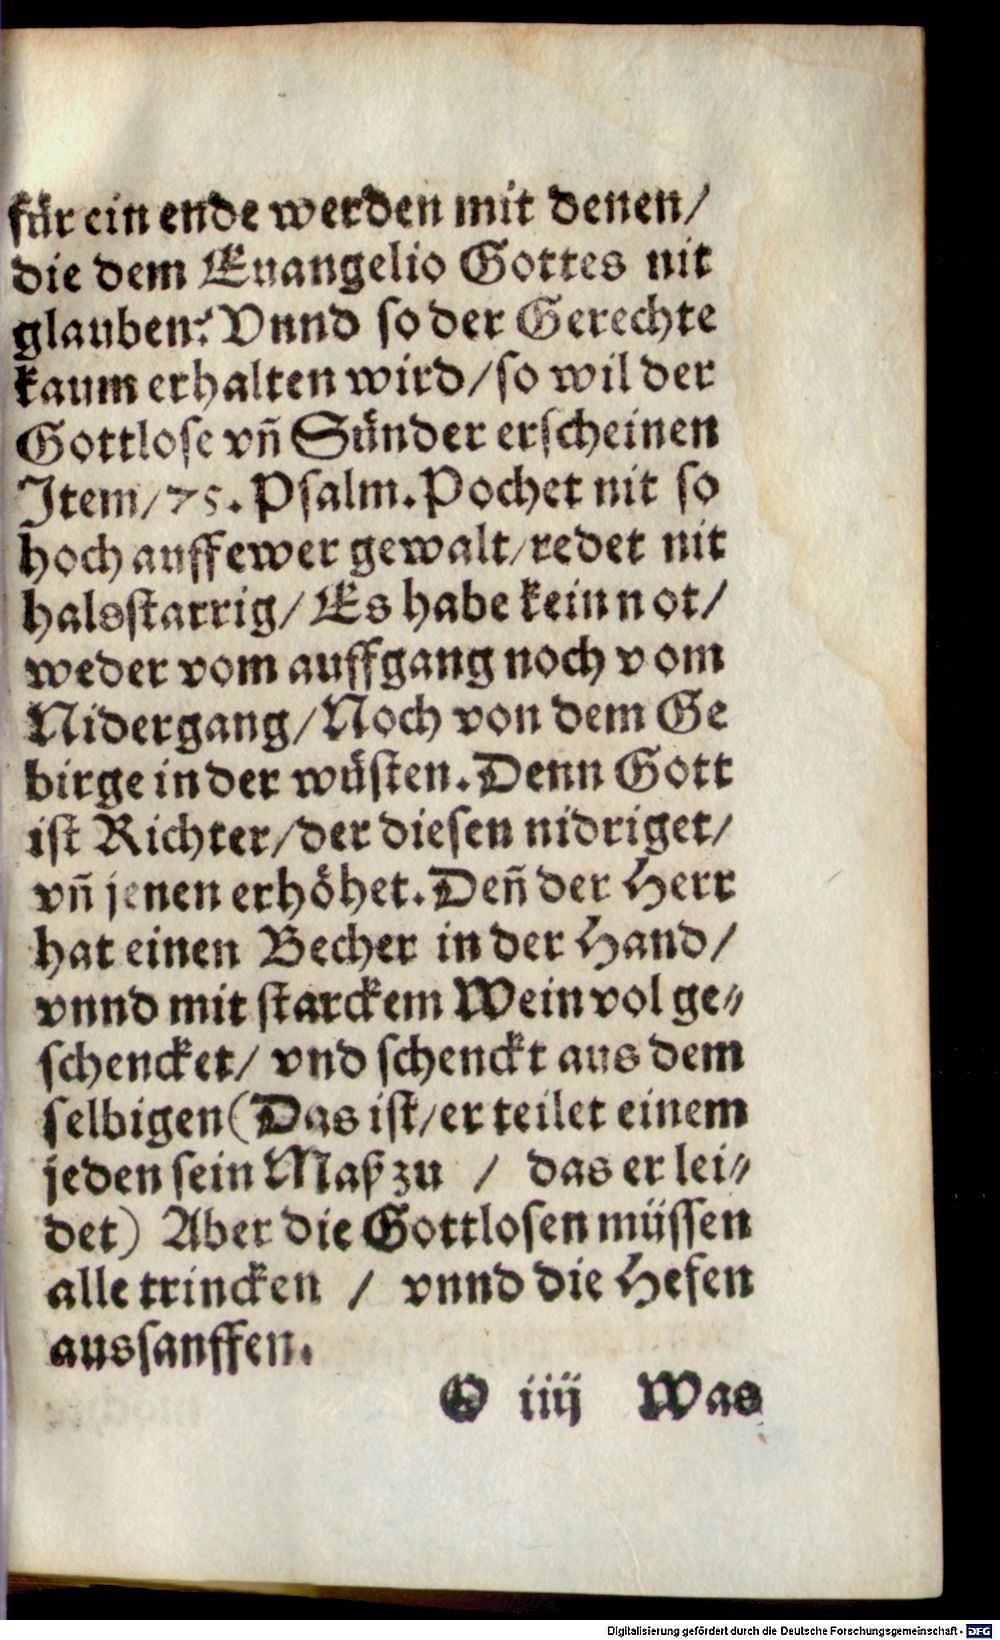 für ein ende werden mit denen/
die dem Euangelio Gottes nit
glauben? Vnnd so der Gerechte
kaum erhalten wird/so wil der
Gottlose vñ Sünder erscheinen
Item/75. Psalm. Pochet nit so
hoch auff ewer gewalt/redet nit
halsstarrig/ Es habe kein not/
weder vom auffgang noch vom
Nidergang/Noch von dem Ge
birge in der wüsten. Denn Gott
ist Richter/der diesen nidriget/
vñ jenen erhöhet. Deñ der Herr
hat einen Becher in der Hand/
vnnd mit starckem Wein vol ge⸗
schencket/ vnd schenckt aus dem
selbigen (Das ist/er teilet einem
jeden sein Maß zu / das er lei⸗
det) Aber die Gottlosen müssen
alle trincken / vnnd die Hefen
aussanffen.
O iiij Was
Digitalisierung gefördert durch die Deutsche Forschungsgemeinschaft - DFG